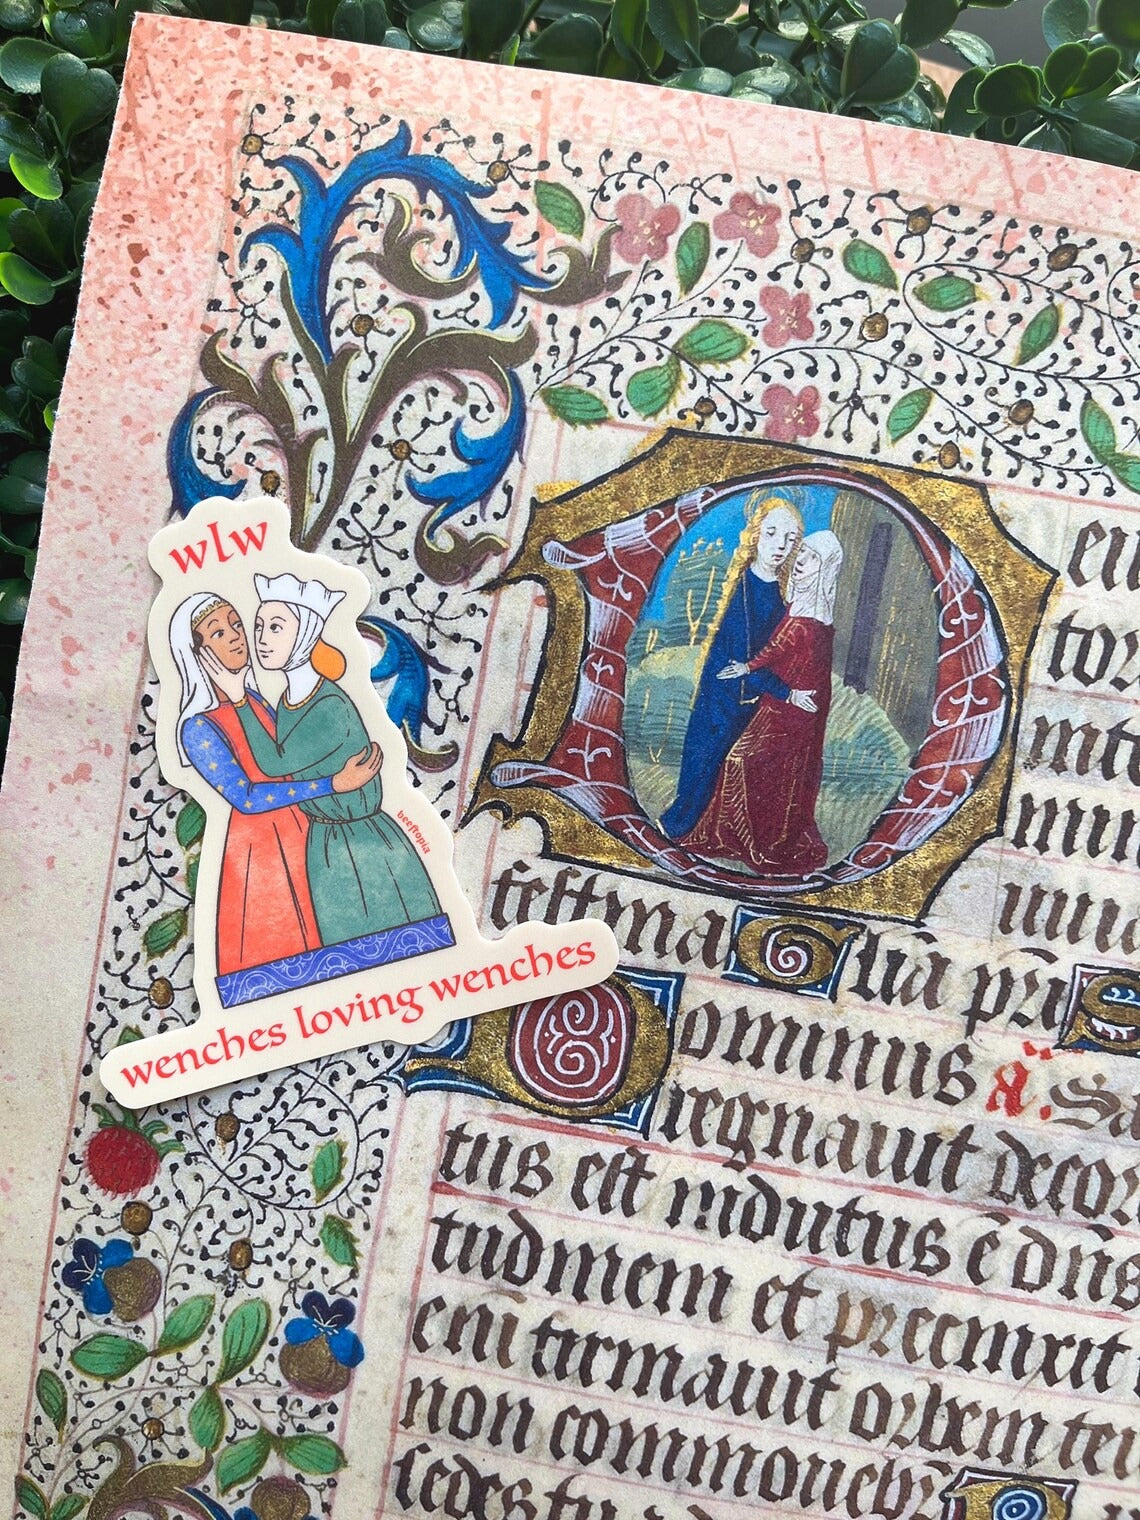 wlw
beeftopia
wenches loving wenches
festina
Gl̄ia pr̄i S
Dominus
regnavit decor
tus est indutus ē dn̄s
tudinem et precinxit
eni firmavit orbem ter
non commoveb̄
sedes tu